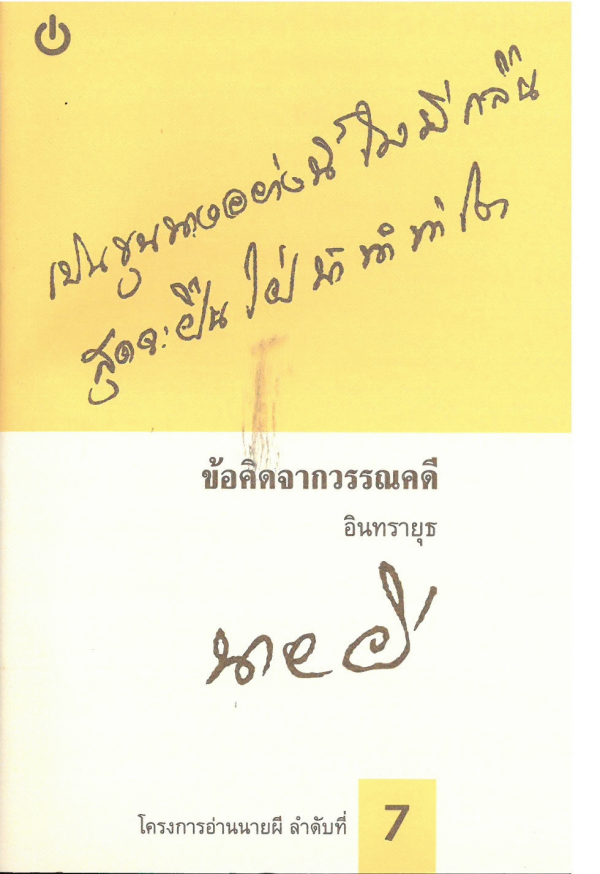 เป็นขุนนางอย่างนี้ไม่มีกลืน
สุดจะฝืนใฝ่น้ำทำท่าโต
ข้อคิดจากวรรณคดี
อินทรายุธ
นายผี
โครงการอ่านนายผี ลำดับที่ 7